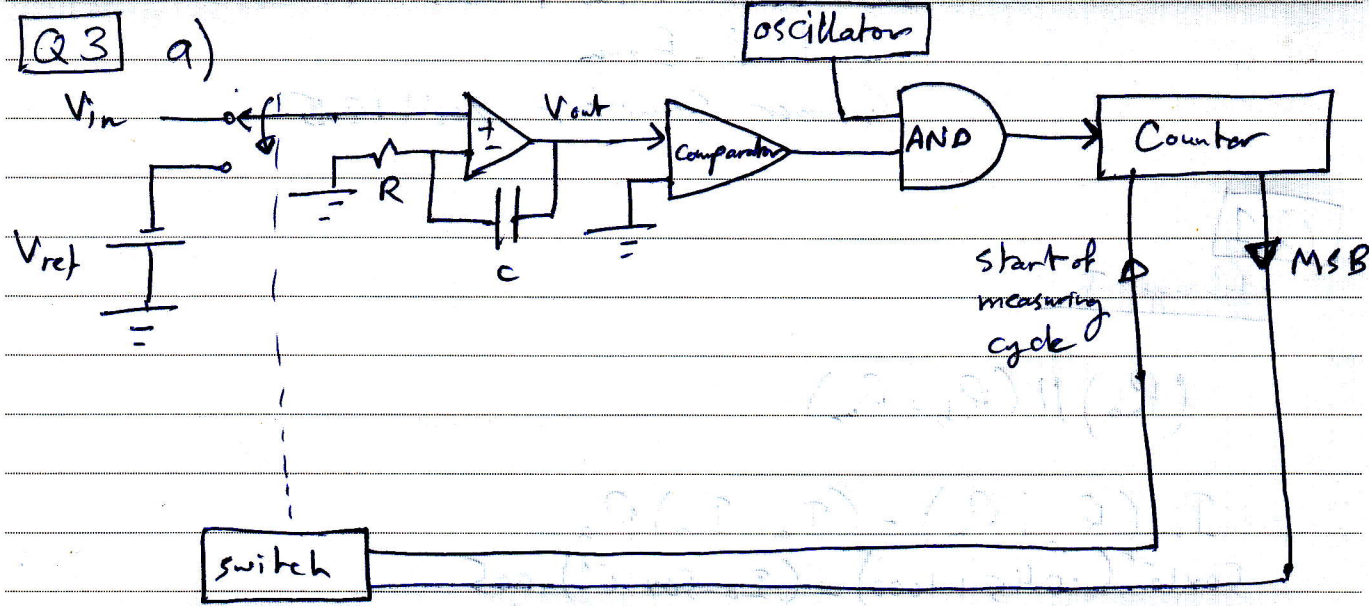 Q3 a)
oscillator
Vin
Vout
+
-
Comparator
AND
Counter
R
C
Vref
start of
measuring
cycle
MSB
switch